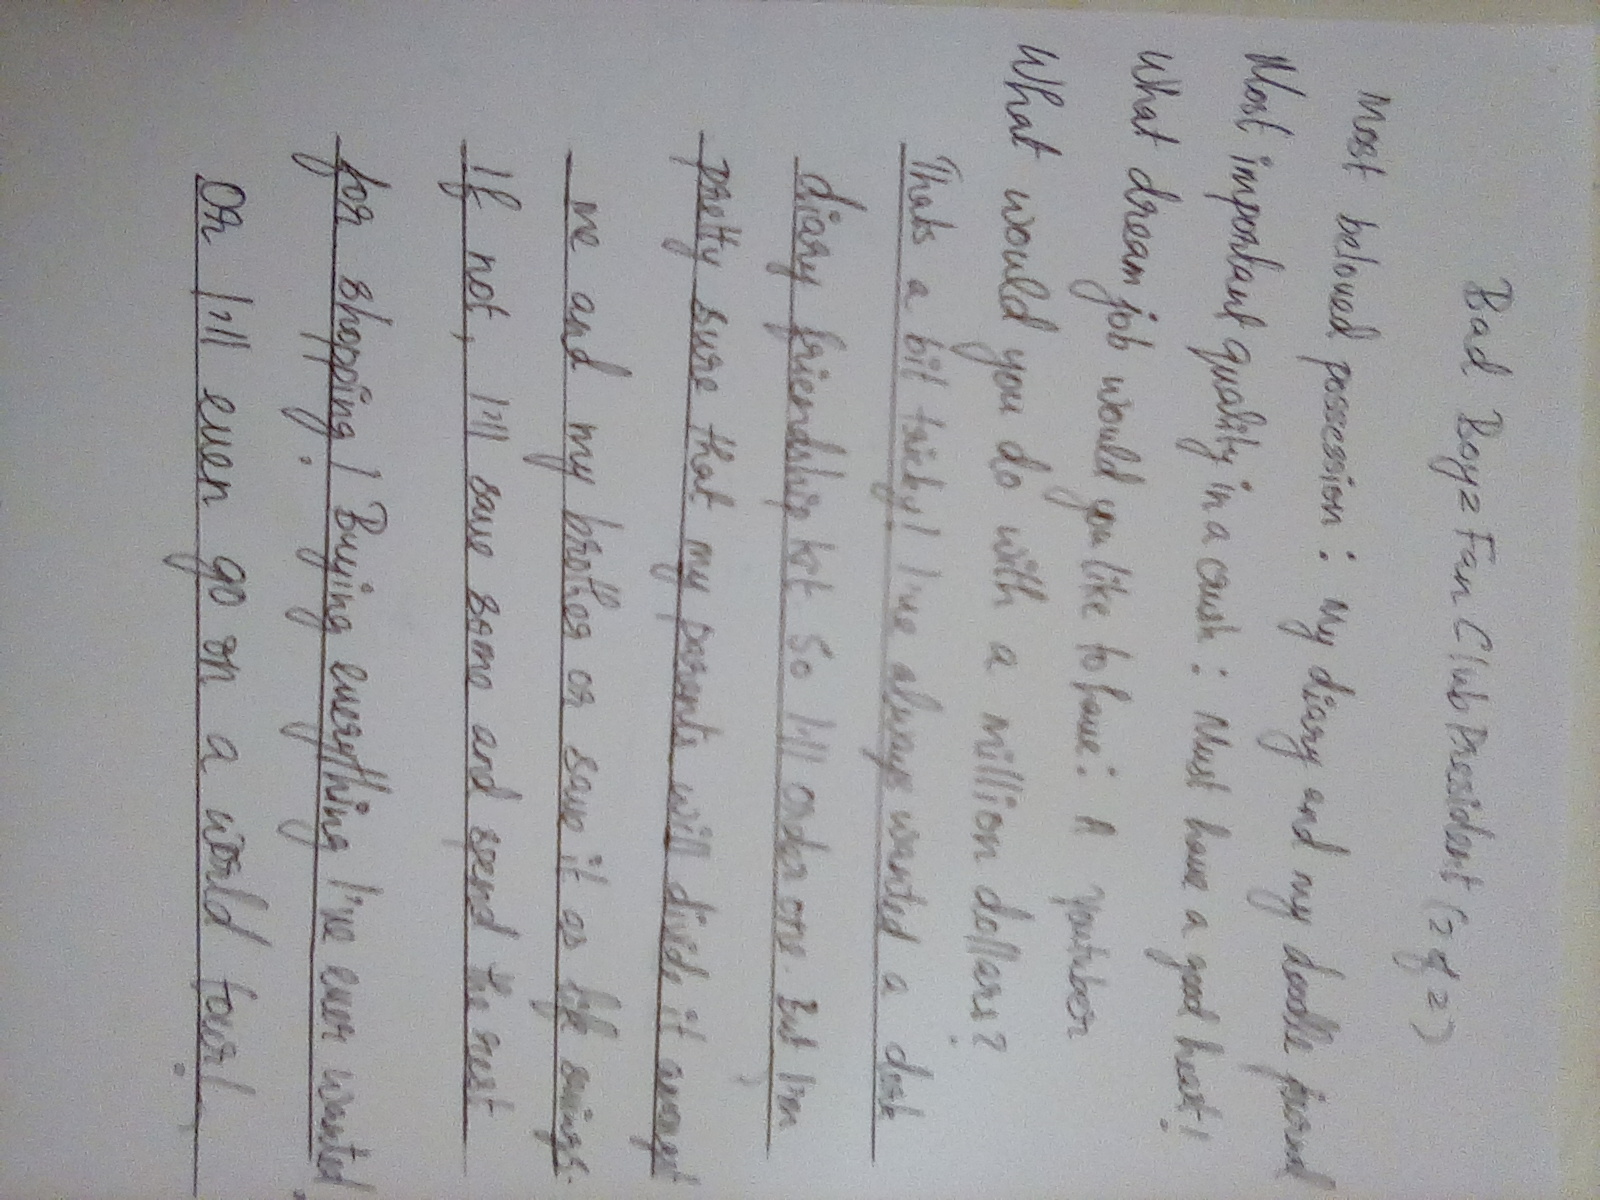 Bad Boyz Fan Club President (2 of 2)
Most beloved possession : My diary and my doodle friend
Most important quality in a crush : Must have a good heart!
What dream job would you like to have : A youtuber
What would you do with a million dollars?
Thats a bit tricky! I've always wanted a dork
diary friendship kit So I'll order one. But I'm
pretty sure that my parents will divide it amongst
me and my brother or save it as life savings.
If not, I'll save some and spend the rest
for shopping! Buying everything I've ever wanted
Or I'll even go on a world tour!